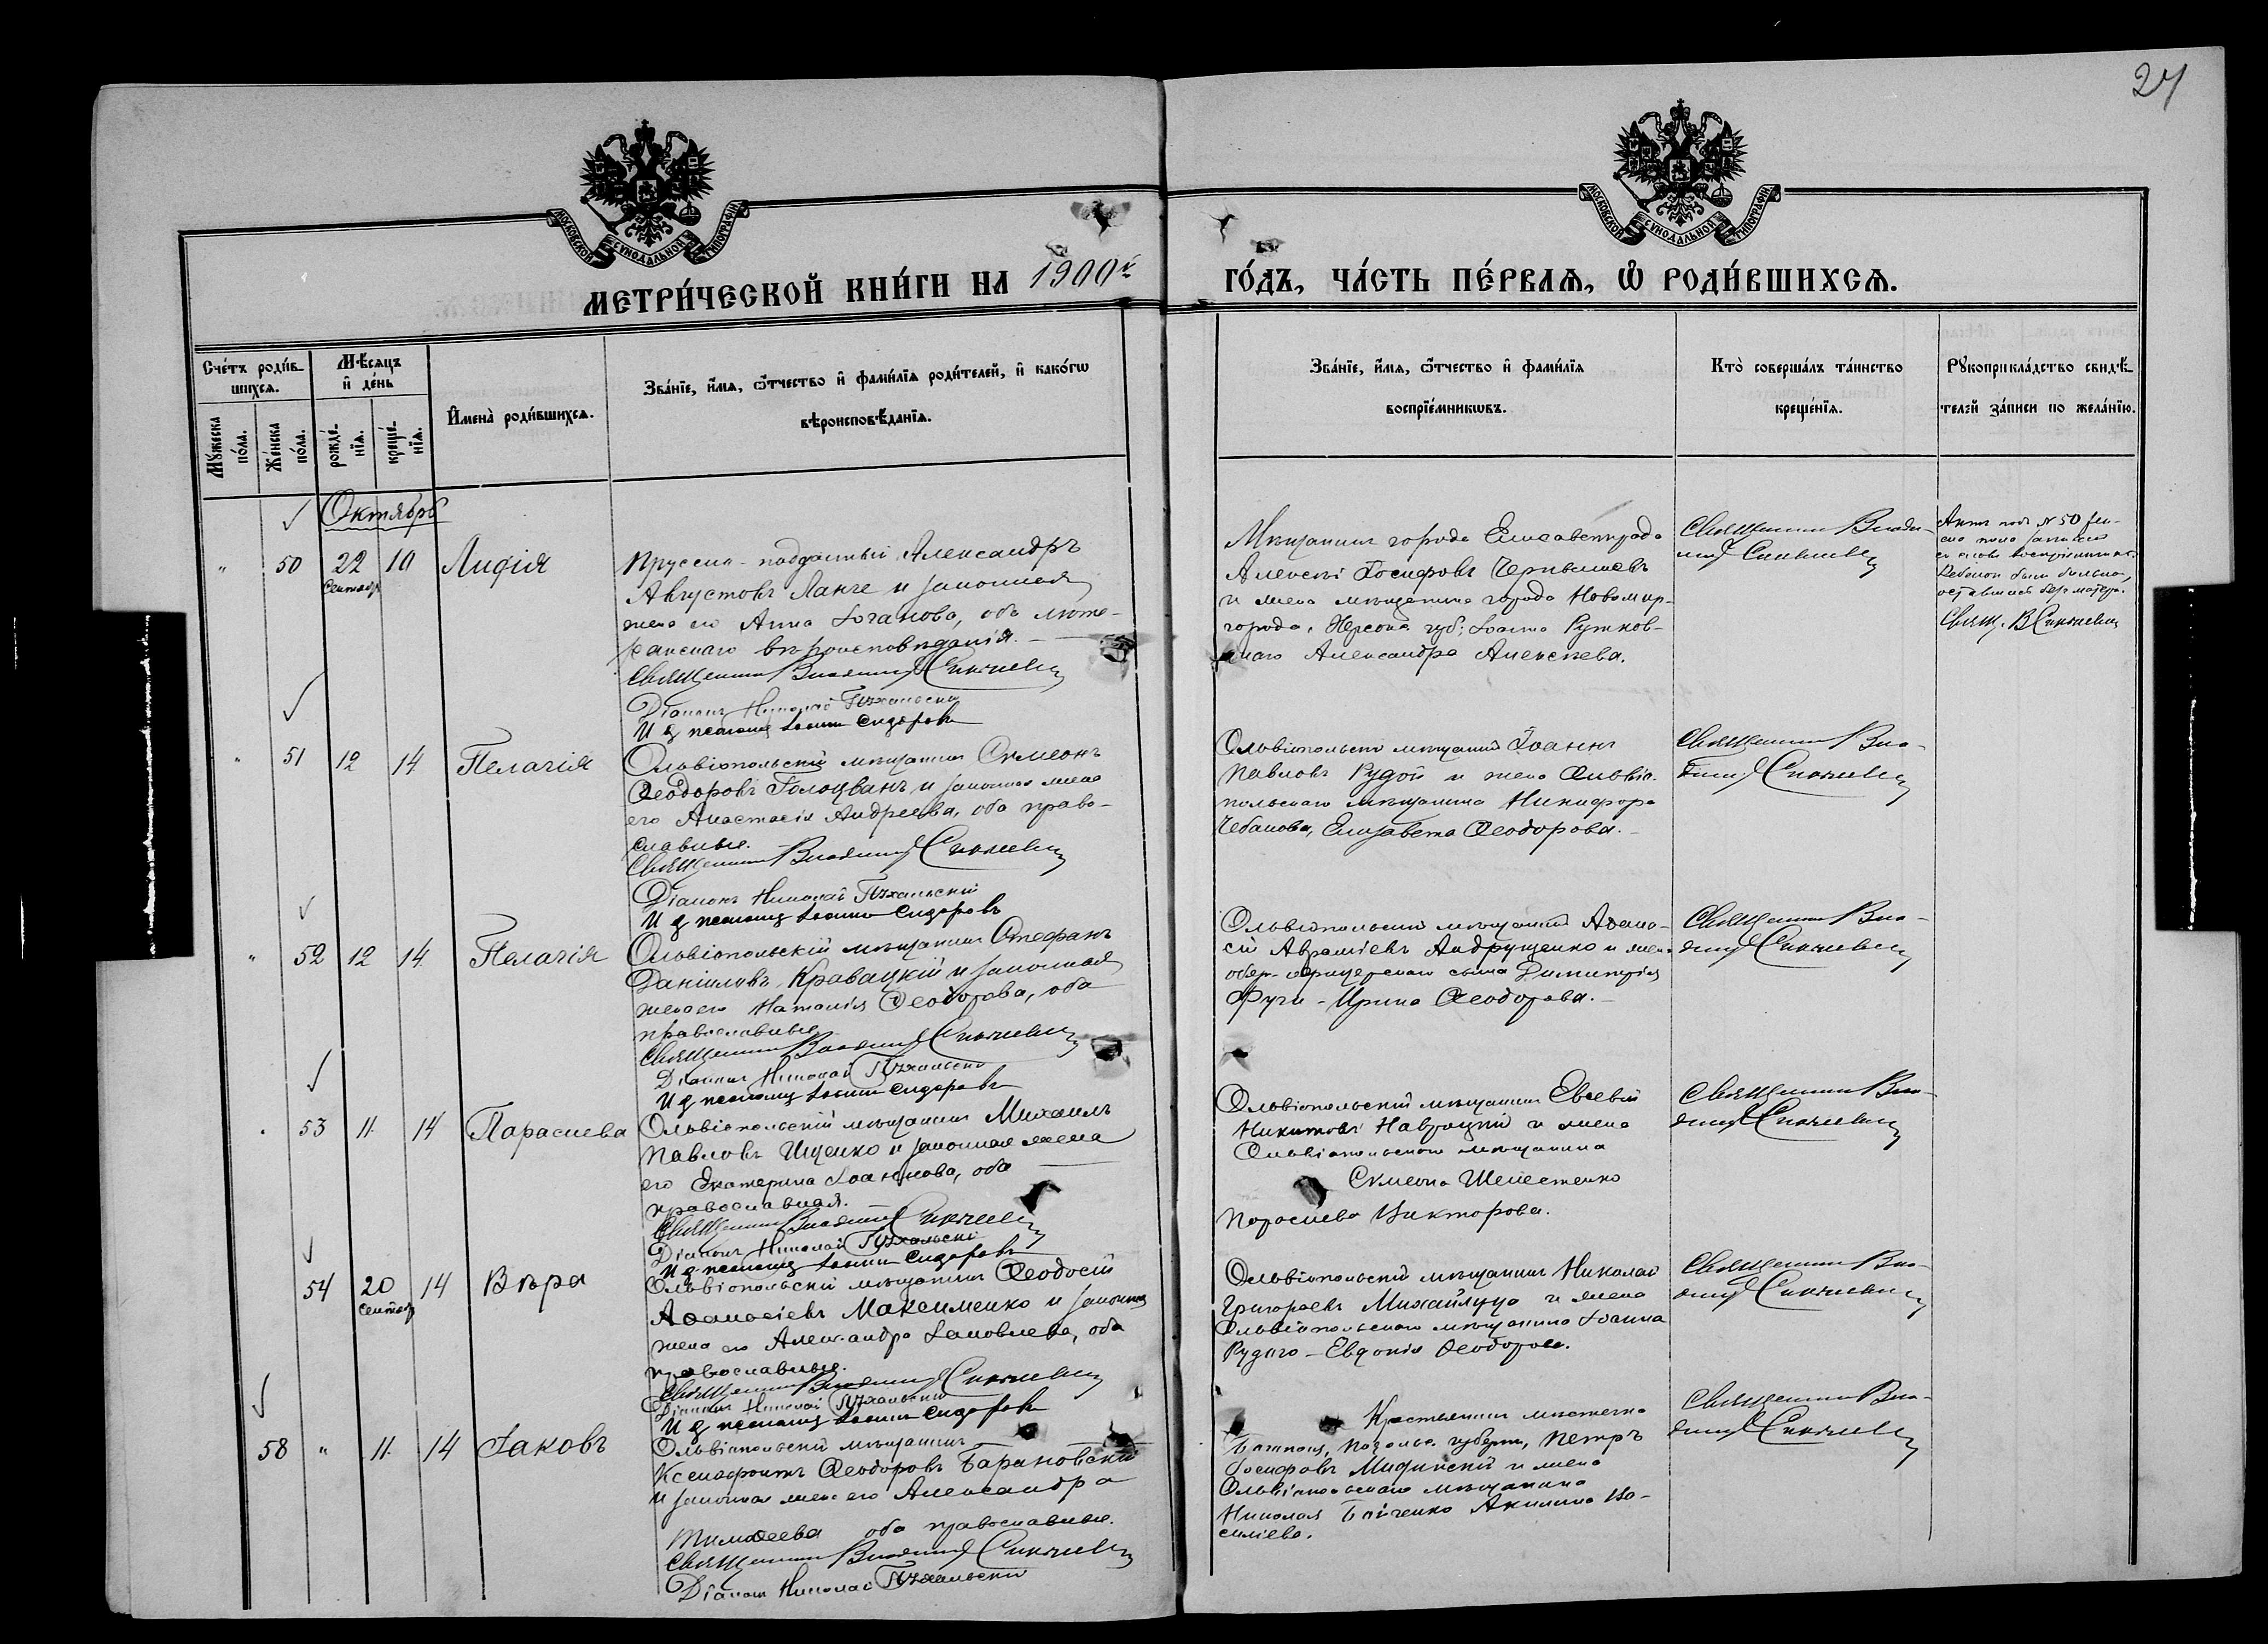 27
МОСКОВСКОЙ СѴНОДАЛЬНОЙ ТИПОГРАФІИ
МОСКОВСКОЙ СѴНОДАЛЬНОЙ ТИПОГРАФІИ
МЕТРИ́ЧЕСКОЙ КНИ́ГИ НА 1900й ГО́ДЪ, ЧА́СТЬ ПЕ́РВАѦ, Ѡ҆ РОДИ́ВШИХСѦ.
Сче́тъ роди́в-
шихсѧ.
Мꙋ́жеска
по́ла.
Же́нска
по́ла.
Мѣ́сѧцъ
и҆ де́нь
рожде́-
нїѧ.
креще́-
нїѧ.
И҆мена̀ роди́вшихсѧ.
Зва́нїе, и҆́мѧ, ѻ҆́тчество и҆ фами́лїѧ роди́телей, и҆ како́гѡ
вѣроисповѣ́данїѧ.
Зва́нїе, и҆́мѧ, ѻ҆́тчество и҆ фами́лїѧ
воспрїе́мникѡвъ.
Кто̀ соверша́лъ та́инство
креще́нїѧ.
Рꙋкоприкла́дство свидѣ́-
телей за́писи по жела́нїю.
Октябрь
" 50 22 Сентяб 10 Лидія
Пруссно-подданный Александръ
Августовъ Ланге и законная
жена его Анна Іоганова, оба люте-
ранскаго вѣроисповѣданія.
Священникъ Владимір Синкевич
Діаконъ Николай Пухальскій
И д псаломщ Іоаннъ Сидоровъ
Мѣщанинъ города Елисаветграда
Алексѣй Іосифовъ Чернышевъ
и жена мѣщанина города Новомир-
города, Херсонс. губ; Іоанна Рутков-
скаго Александра Алексѣева.
Священникъ Влади-
мір Синкевич
Актъ подъ № 50 жен-
ско пола записанъ
со словъ воспріемниковъ.
Ребенок былъ больной,
оставшись безъ матери.
Свящ. В Синкевич
" 51 12 14 Пелагія
Ольвіопольскій мѣщанинъ Сѵмеонъ
Ѳеодоровъ Голоцванъ и законная жена
его Анастасія Андреева, оба право-
славные.
Священникъ Владимір Синкевич
Діаконъ Николай Пухальскій
И д псаломщ Іоаннъ Сидоровъ
Ольвіопольскій мѣщанинъ Іоаннъ
Павловъ Рудой и жена Ольвіо-
польскаго мѣщанина Никифора
Чебанова, Елизавета Ѳеодорова.
Священникъ Вла-
димір Синкевич
" 52 12 14 Пелагія
Ольвіопольскій мѣщанинъ Стефанъ
Даніиловъ Кравацкій и законная
жена его Наталія Ѳеодорова, оба
православные
Священникъ Владимір Синкевич
Діаконъ Николай Пухальскій
И д псаломщ Іоаннъ Сидоровъ
Ольвіопольскій мѣщанинъ Аѳана-
сій Авраміевъ Андрущенко и жена
обер-офицерскаго сына Димитрія
Фуги - Ирина Ѳеодорова.
Священникъ Вла-
димір Синкевич
" 53 11 14 Параскева
Ольвіопольскій мѣщанинъ Михаилъ
Павловъ Ищенко и законная жена
его Екатерина Іоаннова, оба
православная.
Священникъ Владимір Синкевич
Діаконъ Николай Пухальскій
И д псаломщ Іоаннъ Сидоровъ
Ольвіопольскій мѣщанинъ Евсевій
Никитовъ Навроцкій и жена
Ольвіопольскаго мѣщанина
Сѵмеона Шелестенко
Параскева Викторова.
Священникъ Вла-
димір Синкевич
54 20 Сентяб 14 Вѣра
Ольвіопольскій мѣщанинъ Ѳеодосій
Аѳанасіевъ Максименко и законная
жена его Александра Іаковлева, оба
православные.
Священникъ Владимір Синкевич
Діаконъ Николай Пухальскій
И д псаломщ Іоаннъ Сидоровъ
Ольвіопольскій мѣщанинъ Николай
Григорьевъ Михайлуца и жена
Ольвіопольскаго мѣщанина Іоанна
Рудаго - Евдокія Ѳеодорова.
Священникъ Вла-
димір Синкевич
58 " 11 14 Іаковъ
Ольвіопольскій мѣщанинъ
Ксенофонтъ Ѳеодоровъ Барановскій
и законная жена его Александра
Тимоѳеева оба православные.
Священникъ Владимір Синкевич
Діаконъ Николай Пухальскій
Крестьянинъ мѣстечка
Подольс. губерн, Петръ
Іосифовъ и жена
Ольвіопольскаго мѣщанина
Николая Бойченко Акилина Ва-
силіева.
Священникъ Вла-
димір Синкевич